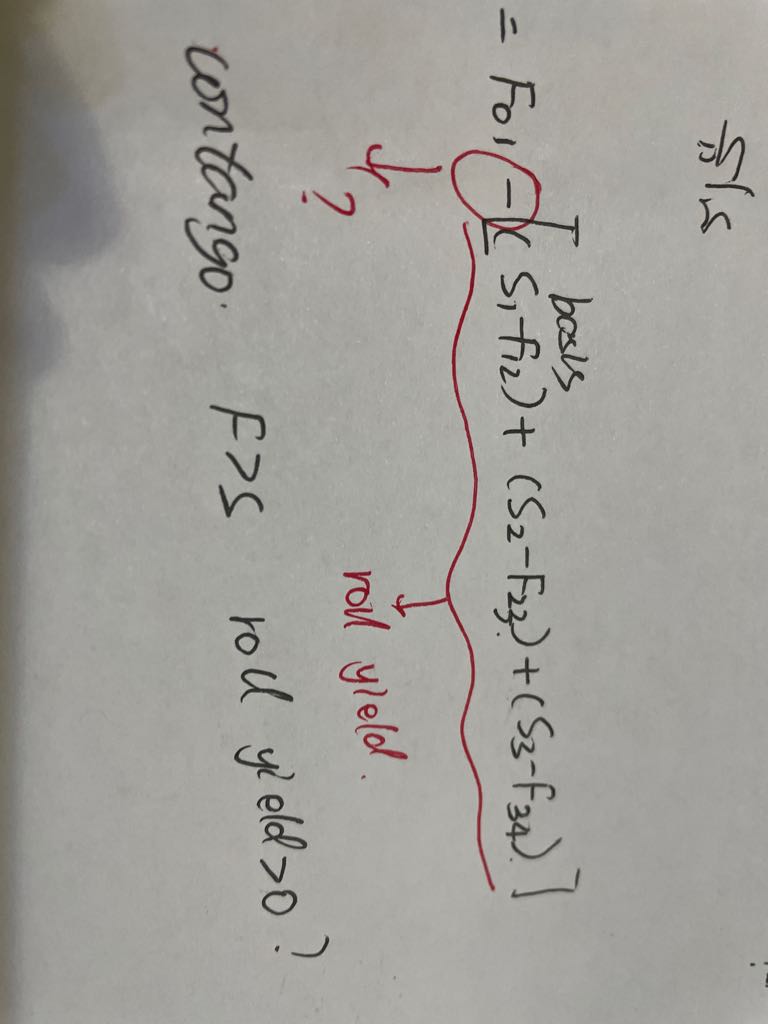 = F01 - [(S1-F12) + (S2-F23) + (S3-F34)]
basis
?
roll yield.
contango. F>S roll yield>0?